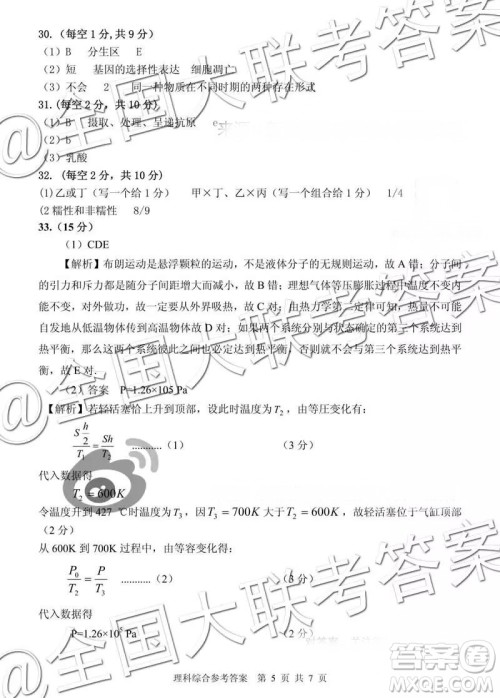 30.（每空1分,共9分）
（1）B 分生区 E
（2）短 基因的选择性表达 细胞凋亡
（3）不会 2 同一种物质在不同时期的两种存在形式
31.(每空2分，共10分）
（1）B 摄取、处理、呈递抗原 e
（2）b
（3）乳酸
32.（每空2分，共10分）
(1)乙或丁（写一个给1分） 甲×丁、乙×丙（写一个组合给1分） 1/4
(2 糯性和非糯性 8/9
33.（15分）
（1）CDE
【解析】布朗运动是悬浮颗粒的运动，不是液体分子的无规则运动，故A错；分子间
的引力和斥力都随分子间距增大而减小，故B错；理想气体等压膨胀过程中温度不变内
能不变，对外做功，一定要从外界吸热，故C对；由热力学第一定律可知，热量不可能
自发地从低温物体传到高温物体故D对；如果两个系统分别与状态确定的第三个系统达到
热平衡，那么这两个系统彼此之间也必定达到热平衡，否则就会与第三个系统达成热平
衡，故E对.
（2）答案 P=1.26×105 Pa
【解析】若轻活塞恰上升到顶部，设此时温度为T₂，由等压变化有：
S h/2 / T₁ = Sh / T₂ ...........（1） （3分）
代入数据得
T₂=600K
令温度升到427 ℃时温度为T₃，因T₃=700K大于T₂=600K，故轻活塞位于气缸顶部
（2分）
从600K到700K过程中，由等容变化得：
P₀/T₂ = P/T₃ ...........（2） （3分）
代入数据得
P=1.26×10⁵ Pa （2分）
理科综合参考答案 第 5 页 共 7 页
@全国大联考答案
@全国大联考答案
@全国大联考答案
答案圈
MXQE.COM